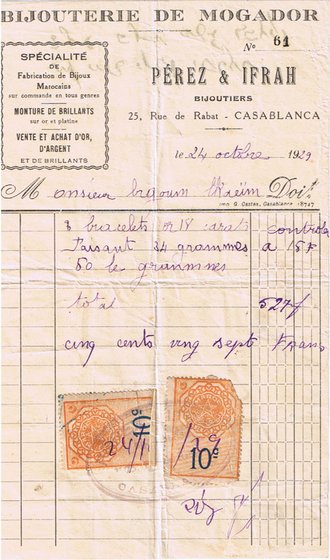 BIJOUTERIE DE MOGADOR
No 61
SPÉCIALITÉ
DE
Fabrication de Bijoux
Marocains
sur commande en tous genres
MONTURE DE BRILLANTS
sur or et platine
VENTE ET ACHAT D'OR,
D'ARGENT
ET DE BRILLANTS
PÉREZ & IFRAH
BIJOUTIERS
25, Rue de Rabat - CASABLANCA
le 24 octobre 1929
Monsieur Doit
Imp. G. Castex, Casablanca 18747
3 bracelets or 18 carats controle
Faisant 34 grammes a 15 F
50 le grammes
total 527 f
cinq cents vng sept Frans
24/1
/19
10c